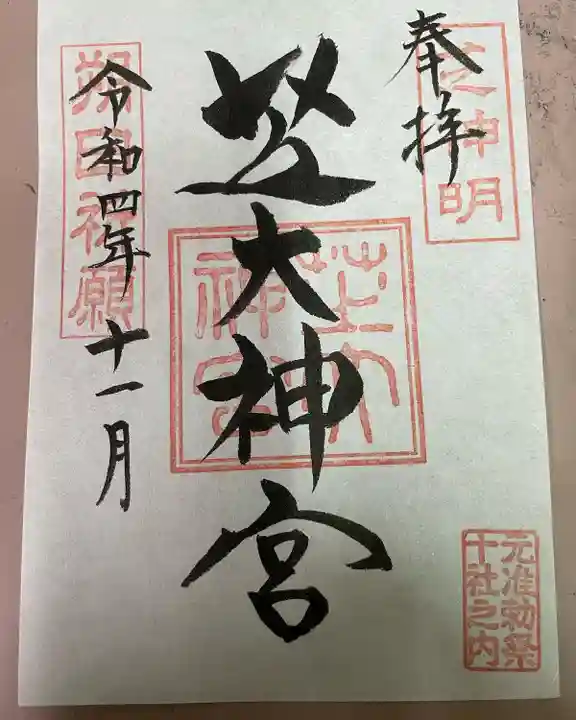 奉拝
芝神明
芝大神宮
芝大神宮
令和四年十一月
朔日祈願
元准勅祭
十社之内